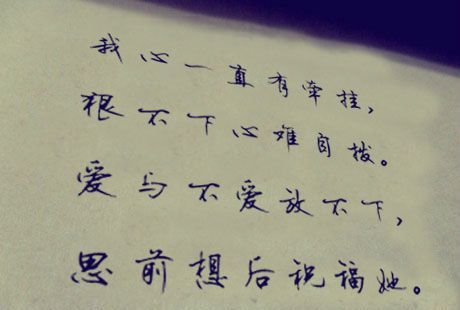 我心一直有牵挂，
狠不下心难自拔。
爱与不爱放不下，
思前想后祝福她。